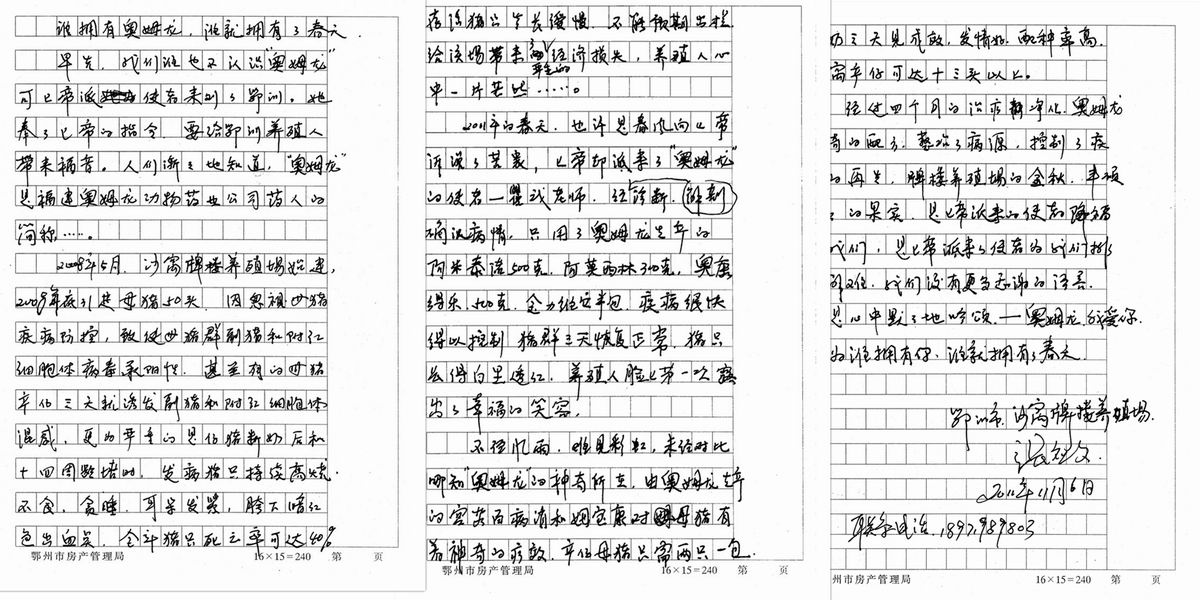 谁拥有奥姆龙，谁就拥有了春天
早先，我们谁也不认识“奥姆龙”
可上帝派使者来到了鄂州。她
奉了上帝的指令，要给鄂州养殖人
带来福音。人们渐々也知道，“奥姆龙”
是福建奥姆龙动物药业公司药人的
简称……。
2008年5月，沙窝牌楼养殖场始建，
2009年底引进母猪50头，因忽视母猪
疾病防控，致使母猪群副猪和附红
细胞体病毒呈阳性，甚至有的母猪
产仔三天就诱发副猪和附红细胞体
混感，更为严重的是仔猪断奶后和
十四周龄堵时，发病猪只持续高烧，
不食，贪睡，耳尖发紫，胯下暗红
色出血点，全年猪只死亡率可达40%
鄂州市房产管理局 16×15=240 第 页
存活猪只生长缓慢，不能预期出栏
给该场带来了严重的经济损失，养殖人心
中一片茫然……。
2011年的春天，也许是春风向上帝
诉说了苦衷，上帝却派来了“奥姆龙”
的使者—瞿战老师，经诊断，解剖
确认病情，只用了奥姆龙生产的
阿米泰流500克，阿莫西林300克，奥康
得乐500克，金力维它半包，疫病很快
得以控制，猪群三天恢复正常，猪只
长得白里透红，养殖人脸上第一次露
出了幸福的笑容。
不经风雨，难见彩虹，未经对比
哪知“奥姆龙”的神奇所在，由奥姆龙生产
的宫苦百病清和姆宝康对母猪有
着神奇的疗效，产仔母猪只需两只一包，
鄂州市房产管理局 16×15=240 第 页
奶三天见成效，发情好，配种率高，
窝产仔可达十三头以上。
经过四个月的治疗和净化，奥姆龙
奇的配方，整治了病源，控制了疫
的再生，牌楼养殖场的金秋，丰硕
的果实，是上帝派来的使者降福
我们，是上帝派来了使者为我们排
解难，我们没有更多感谢的语言，
是心中默々地吟颂，—奥姆龙我爱你，
为谁拥有你，谁就拥有了春天。
鄂州市沙窝牌楼养殖场
2011年11月6日
联系电话，18971989803
州市房产管理局 16×15=240 第 页